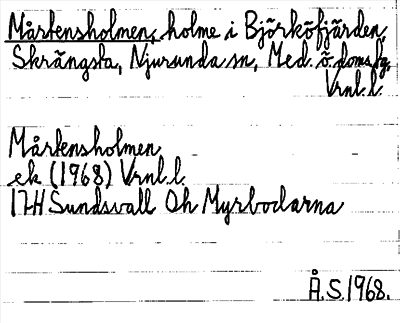 Mårtensholmen, holme i Björköfjärden,
Skrängsta, Njurunda sn, Med. ö. doms.fg,
Vrnl. l.
Mårtensholmen
ek (1968) Vrnl. l.
17H Sundsvall Oh Myrbodarna
Å.S. 1968.